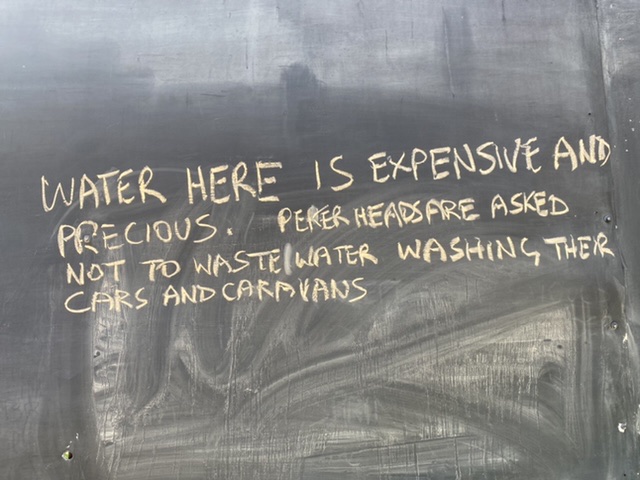 WATER HERE IS EXPENSIVE AND
PRECIOUS. PEKER HEADS ARE ASKED
NOT TO WASTE WATER WASHING THEIR
CARS AND CARAVANS